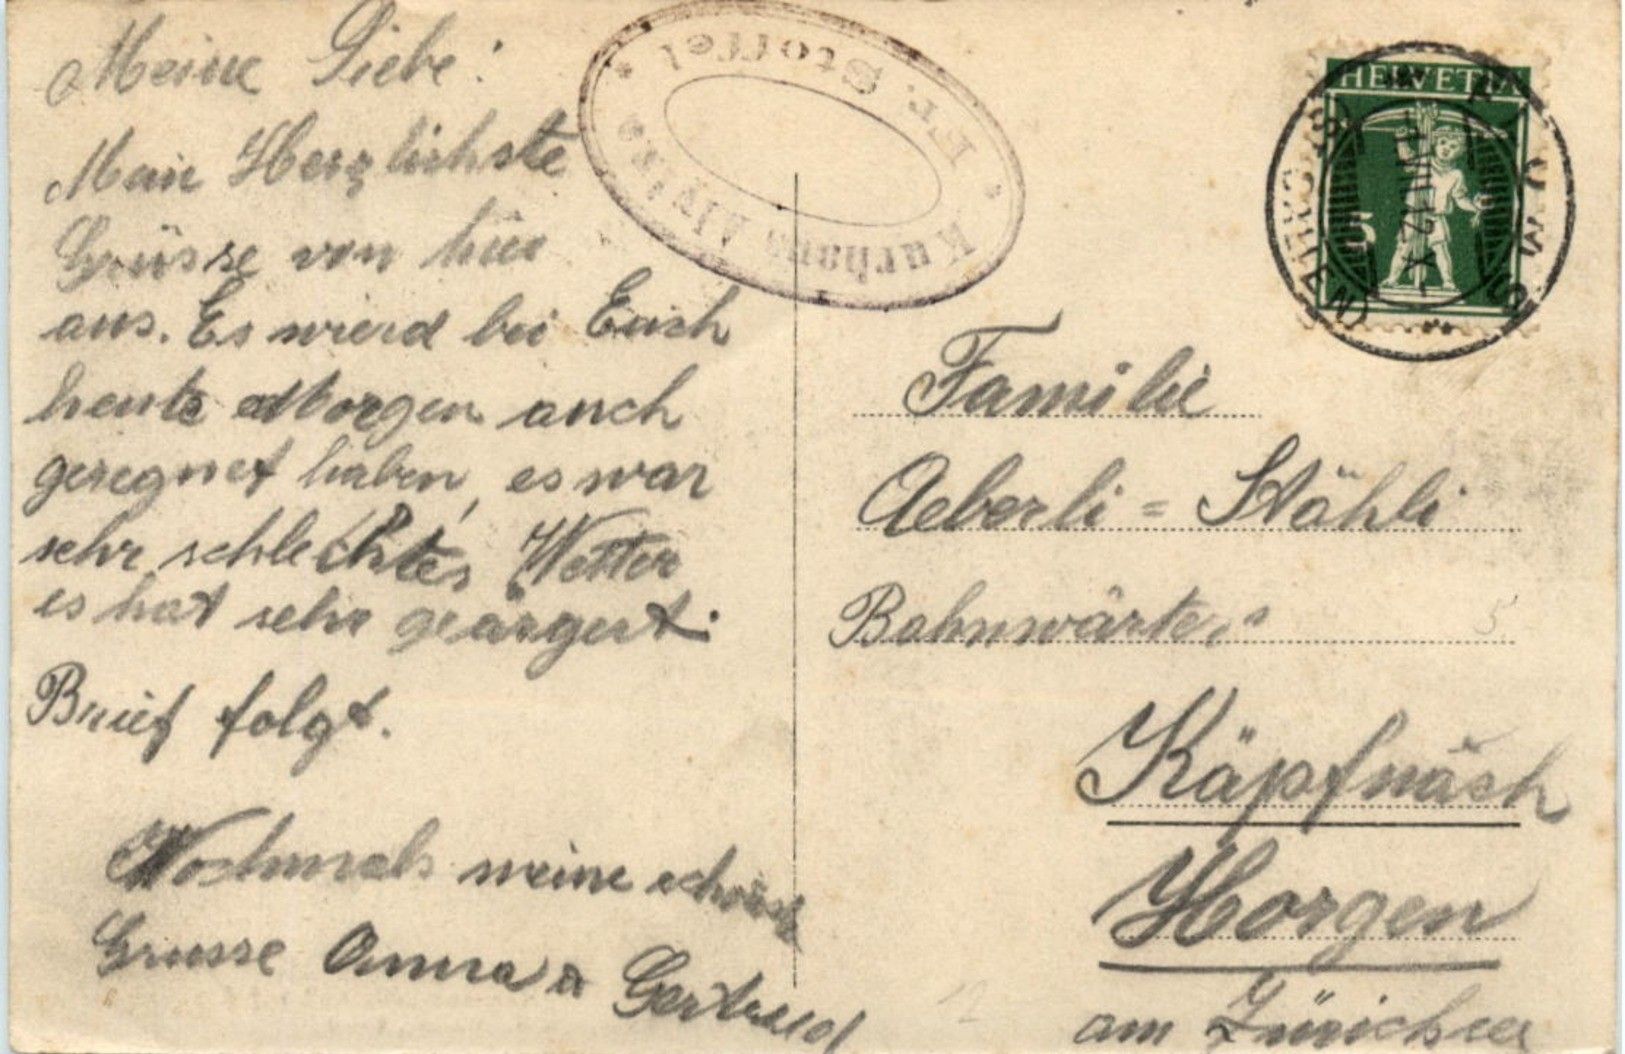 Meine Liebe!
Mein Herzlichste
Grüsse von hier
aus. Es wierd bei Euch
heute Morgen auch
geregnet haben, es war
sehr schlechtes Wetter
es hat sehr geärgert.
Brief folgt.
Nochmals meine schönste
Grusse Anna & Gertrud
* Kurhaus Alvier *
Fr. Stoffel
HELVETIA
5
Familie
Aeberli = Stähli
Bahnwärter
Käpfnach
Horgen
am Zürichsee
5
12